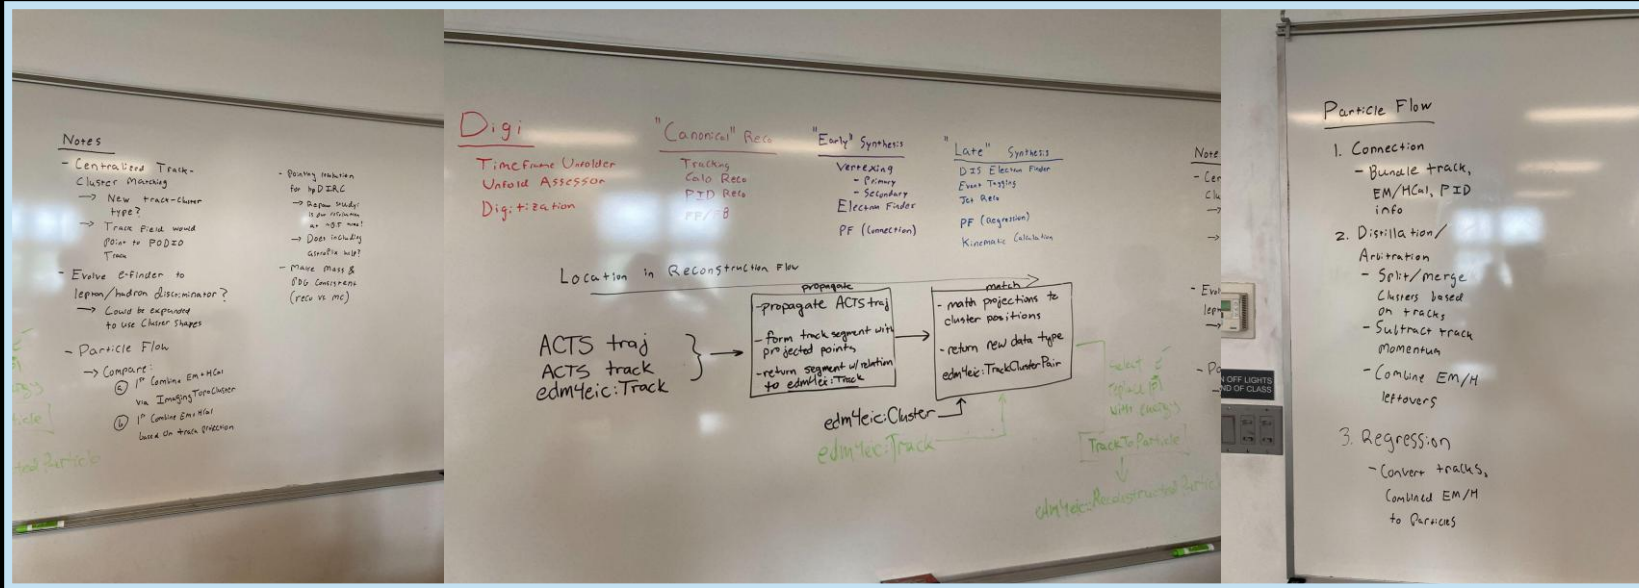 Notes
- Centralized Track-
Cluster Matching
→ New track-cluster
type?
→ Track field would
point to PODIO
Track
- Evolve e-finder to
lepton/hadron discriminator?
→ Could be expanded
to use cluster shapes
- Particle Flow
→ Compare:
ⓐ 1st Combine EM+HCal
via ImagingTopoCluster
ⓑ 1st Combine EM+HCal
based on track projection
- Pointing resolution
for hpDIRC
→ Does including
help?
- Make mass &
PDG consistent
(reco vs mc)
Digi
Timeframe Unfolder
Unfold Assessor
Digitization
"Canonical" Reco
Tracking
Calo Reco
PID Reco
"Early" Synthesis
Vertexing
- Primary
- Secondary
Electron Finder
PF (Connection)
"Late" Synthesis
DIS Electron Finder
Event Tagging
Jet Reco
PF (Regression)
Kinematic Calculation
Location in Reconstruction Flow
ACTS traj
ACTS track
edm4eic::Track
propagate
- propagate ACTS traj
- form track segment with
projected points
- return segment w/relation
to edm4eic::Track
match
- math projections to
cluster positions
- return new data type
edm4eic::TrackClusterPair
edm4eic::Cluster
edm4eic::Track
select
replace |p|
with energy
TrackToParticle
edm4eic::ReconstructedParticle
N OFF LIGHTS
ND OF CLASS
Particle Flow
1. Connection
- Bundle track,
EM/HCal, PID
info
2. Distillation/
Arbitration
- Split/merge
Clusters based
on tracks
- Subtract track
momentum
- Combine EM/H
leftovers
3. Regression
- Convert tracks,
Combined EM/H
to Particles